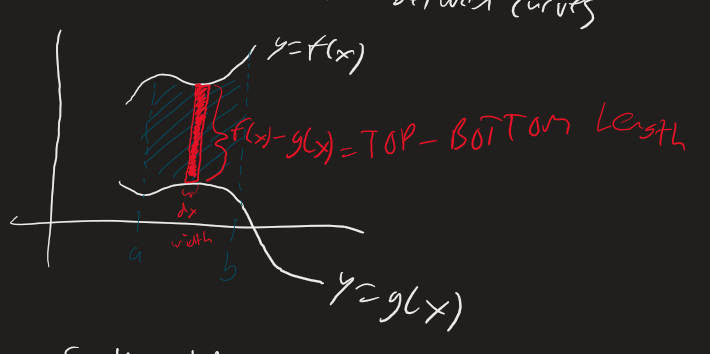 between curves
y=f(x)
f(x)-g(x)=TOP-BOTTOM Length
dx
width
a
b
y=g(x)